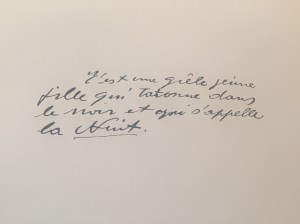 C'est une grêle jeune
fille qui tatonne dans
le noir et qui s'appelle
la Nuit.